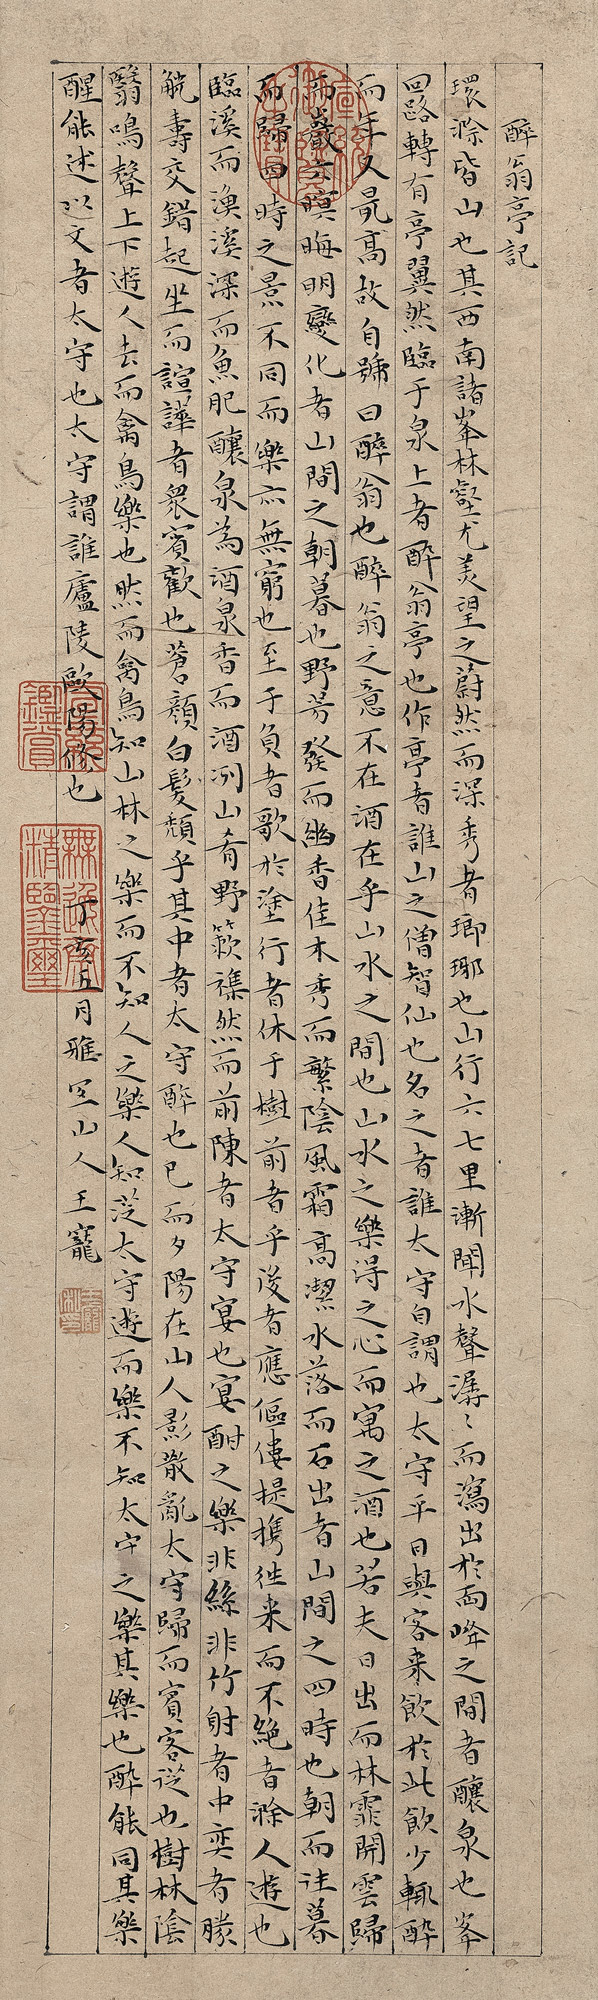 醉翁亭記
環滁皆山也其西南諸峯林壑尤美望之蔚然而深秀者瑯琊也山行六七里漸聞水聲潺〻而瀉出於兩峰之間者釀泉也峯
回路轉有亭翼然臨于泉上者醉翁亭也作亭者誰山之僧智仙也名之者誰太守自謂也太守平日與客来飲於此飲少輒醉
而年又最高故自號曰醉翁也醉翁之意不在酒在乎山水之間也山水之樂淂之心而寓之酒也若夫日出而林霏開雲歸
而巖穴暝晦明變化者山間之朝暮也野芳發而幽香佳木秀而繁陰風霜高潔水落而石出者山間之四時也朝而往暮
而歸四時之景不同而樂亦無窮也至于負者歌於塗行者休于樹前者乎後者應傴僂提携往来而不絶者滁人遊也
臨溪而漁溪深而魚肥釀泉為酒泉香而酒冽山肴野蔌襍然而前陳者太守宴也宴酣之樂非絲非竹射者中奕者勝
觥壽交錯起坐而諠譁者衆賓歡也蒼顔白髮頽乎其中者太守醉也已而夕陽在山人影散亂太守歸而賓客從也樹林陰
翳鳴聲上下遊人去而禽鳥樂也然而禽鳥知山林之樂而不知人之樂人知從太守遊而樂不知太守之樂其樂也醉能同其樂
醒能述以文者太守也太守謂誰廬陵歐陽修也 丁亥五月雅宜山人王寵
宣統御覽之寶
宣統鑑賞
無逸齋精鑒璽